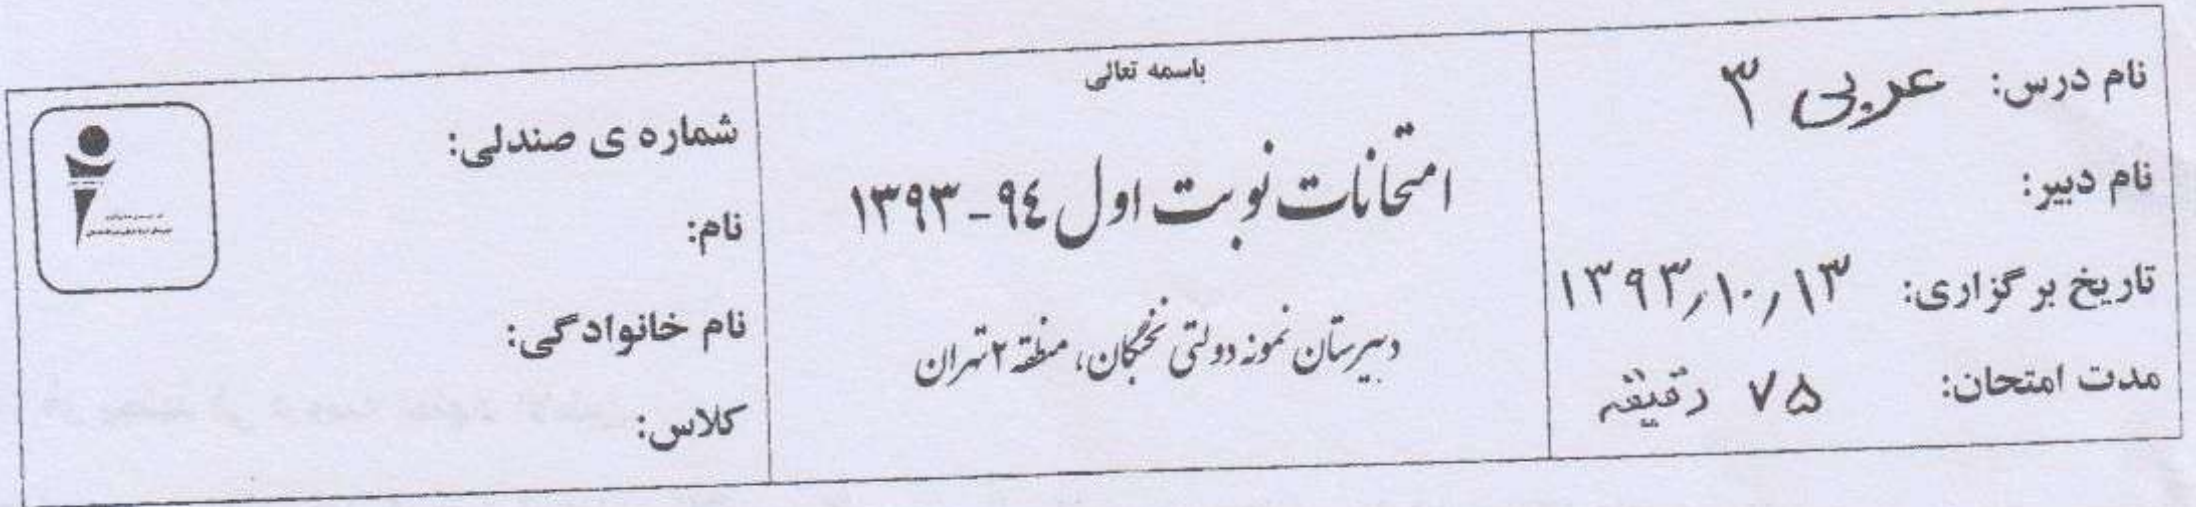 نام درس: عربی ۳
نام دبیر:
تاریخ برگزاری: ۱۳۹۳/۱۰/۱۳
مدت امتحان: ۷۵ دقیقه
باسمه تعالی
امتحانات نوبت اول ۹۴-۱۳۹۳
دبیرستان نمونه دولتی نخبگان، منطقه ۲ تهران
شماره ی صندلی:
نام:
نام خانوادگی:
کلاس: